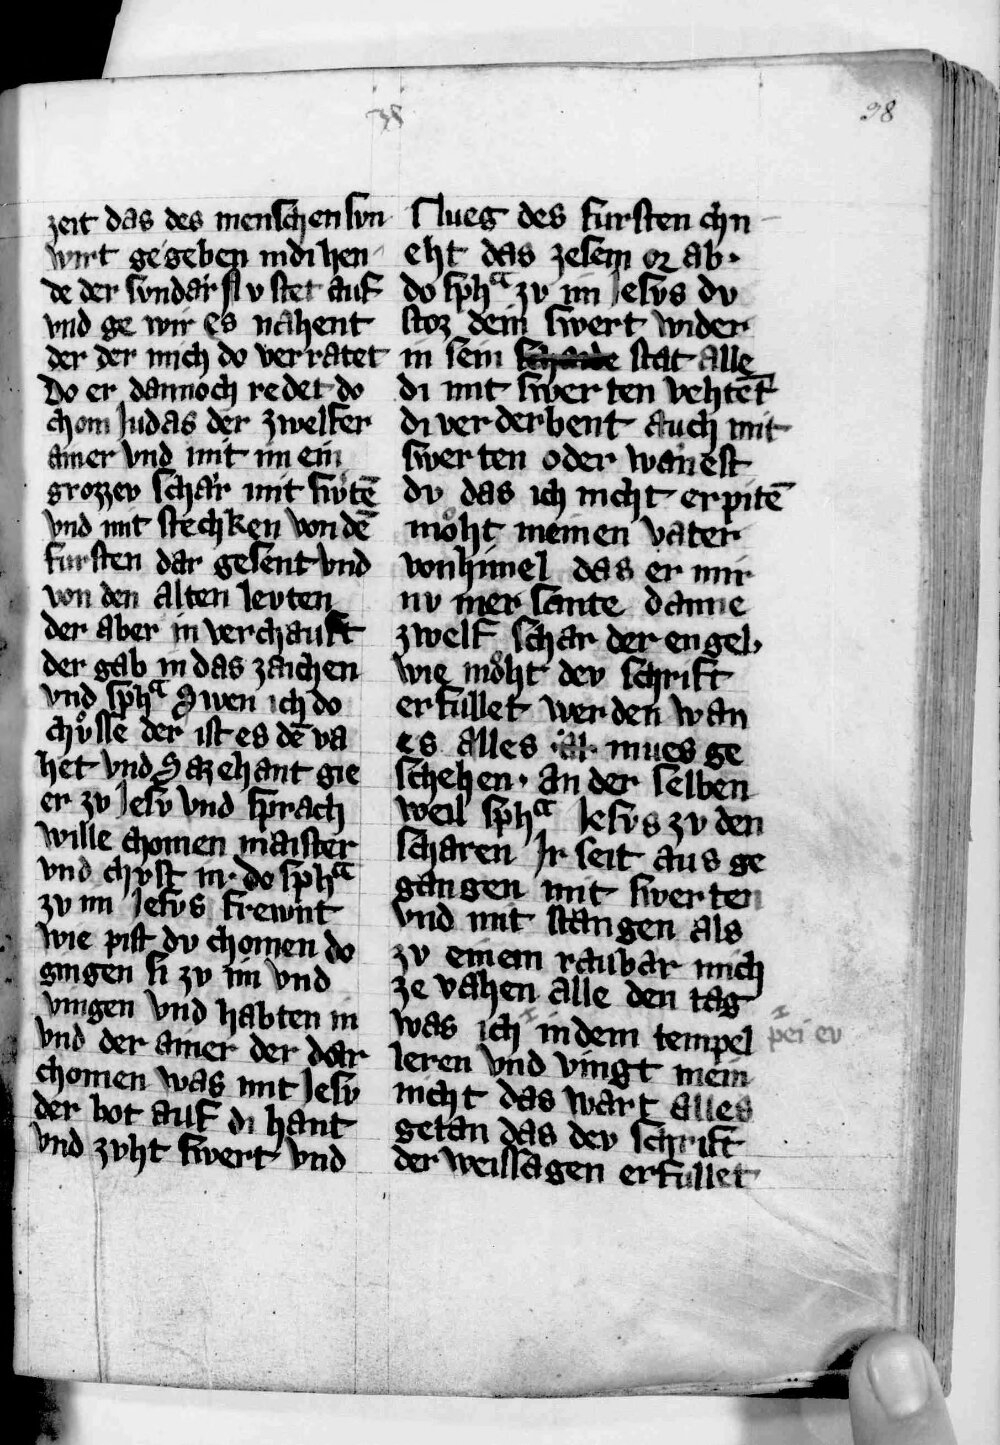 38
38
zeit das des menschen sun
wirt gegeben in di hen
de der sundar Nu stet auf
vnd ge wir es nahent
der der mich do verratet
Do er dannoch redet do
chom Judas der zwelfer
ainer vnd mit im ein
grozzev schar mit swͤtē
vnd mit stechken von dē
fursten dar gesent vnd
von den alten levten
der aber in verchauft
der gab in das zaichen
vnd sphᵃ Swen ich do
chůsse der ist es dē va
het vnd Sazehant gie
er zv Jesv vnd sprach
wille chomen maister
vnd chvst in. do sphᵃ
zv im Jesvs frewnt
wie pist dv chomen do
gingen si zv im vnd
vingen vnd habten in
vnd der ainer der dar
chomen was mit Jesv
der bot auf di hant
vnd zvht swert vnd
slueg des fursten chn
eht das zesem or ab.
do sphᵃ zv im Jesvs dv
stoz dein swert wider
in sein stat alle
di mit swerten vehtēt
di verderbent auch mit
swerten oder wanest
dv das ich nicht erpitē
moͤht meinen vater
von himel das er mir
nv mer sante danne
zwelf schar der engel.
wie moͤht dev schrift
erfullet werden wan
es alles mues ge
schehen. an der selben
weil sphᵃ Jesvs zv den
scharen Ir seit aus ge
gangen mit swerten
vnd mit stangen als
zv einem raubar mich
ze vahen alle den tag
was ich in dem tempel pei ev
leren vnd vingt mein
nicht das wart alles
getan das dev schrift
der weissagen erfullet